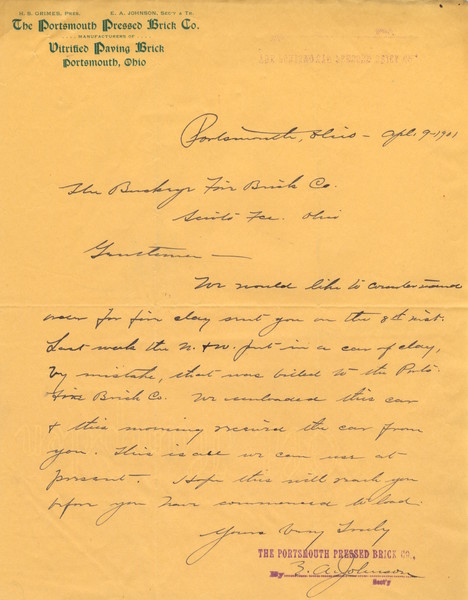 H. S. GRIMES, PRES. E. A. JOHNSON, SEC'Y & TR.
The Portsmouth Pressed Brick Co.
... MANUFACTURERS OF ...
Vitrified Paving Brick
Portsmouth, Ohio
Portsmouth, Ohio - Apl. 9-1901
The Buckeye Fire Brick Co.
Scioto Fce. Ohio
Gentlemen —
We would like to countermand
order for fire clay sent you on the 8th inst.
Last week the N. & W. put in a car of clay,
by mistake, that was billed to the Ports
Fire Brick Co. We unloaded this car
& this morning receive the car from
you. This is all we can use at
present. Hope this will reach you
before you have commenced to load.
Yours Very Truly
THE PORTSMOUTH PRESSED BRICK CO.,
By E. A. Johnson
Sect'y